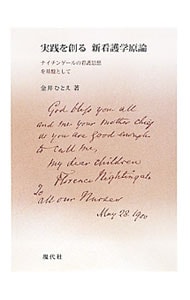 実践を創る 新看護学原論
ナイチンゲールの看護思想
を基盤として
金井ひとえ
God bless you all
and me your mother chief
as you are good enough
to call me,
my dear children
Florence Nightingale
To all our Nurses
May 28 1900
現代社